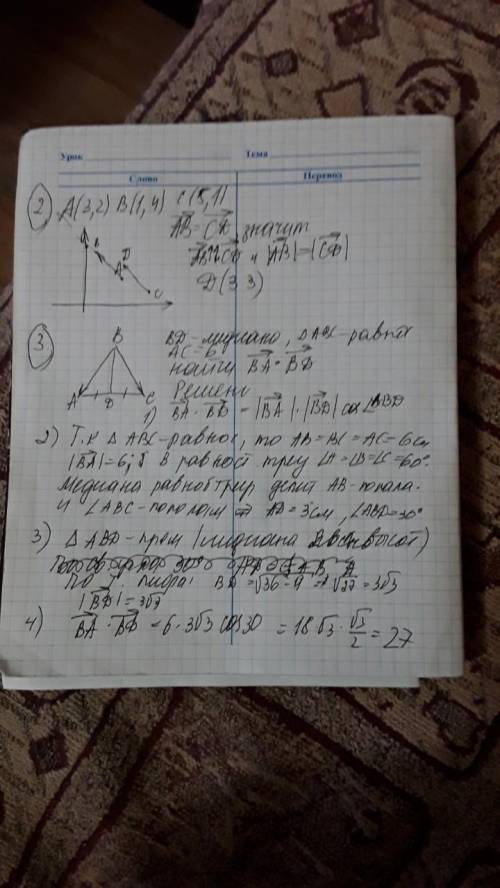 Урок Тема
Слово Перевод
2 A(3,2) B(1,4) C(5,1)
AB = CD значит
AB↑↑CD и |AB|=|CD|
D(3 3)
B D A C
3 BD-медиана, △ABC-равн
AC=6
найти BA · BD
Решени
B
A D C
1) BA · BD = |BA| · |BD| cos∠ABD
2) Т.к △ABC-равнос, то AB=BC=AC=6см
|BA|=6; В равност треу ∠A=∠B=∠C=60°.
Медиана делит попола-
и ∠ABC-пополам ⇒ AD=3см, ∠ABD=30°
3) △ABD-прям (медиана высот)
По т. Пифаг BD = √36-9 = √27 = 3√3
|BD| = 3√3
4) BA · BD = 6·3√3 cos30 = 18√3 · √3/2 = 27